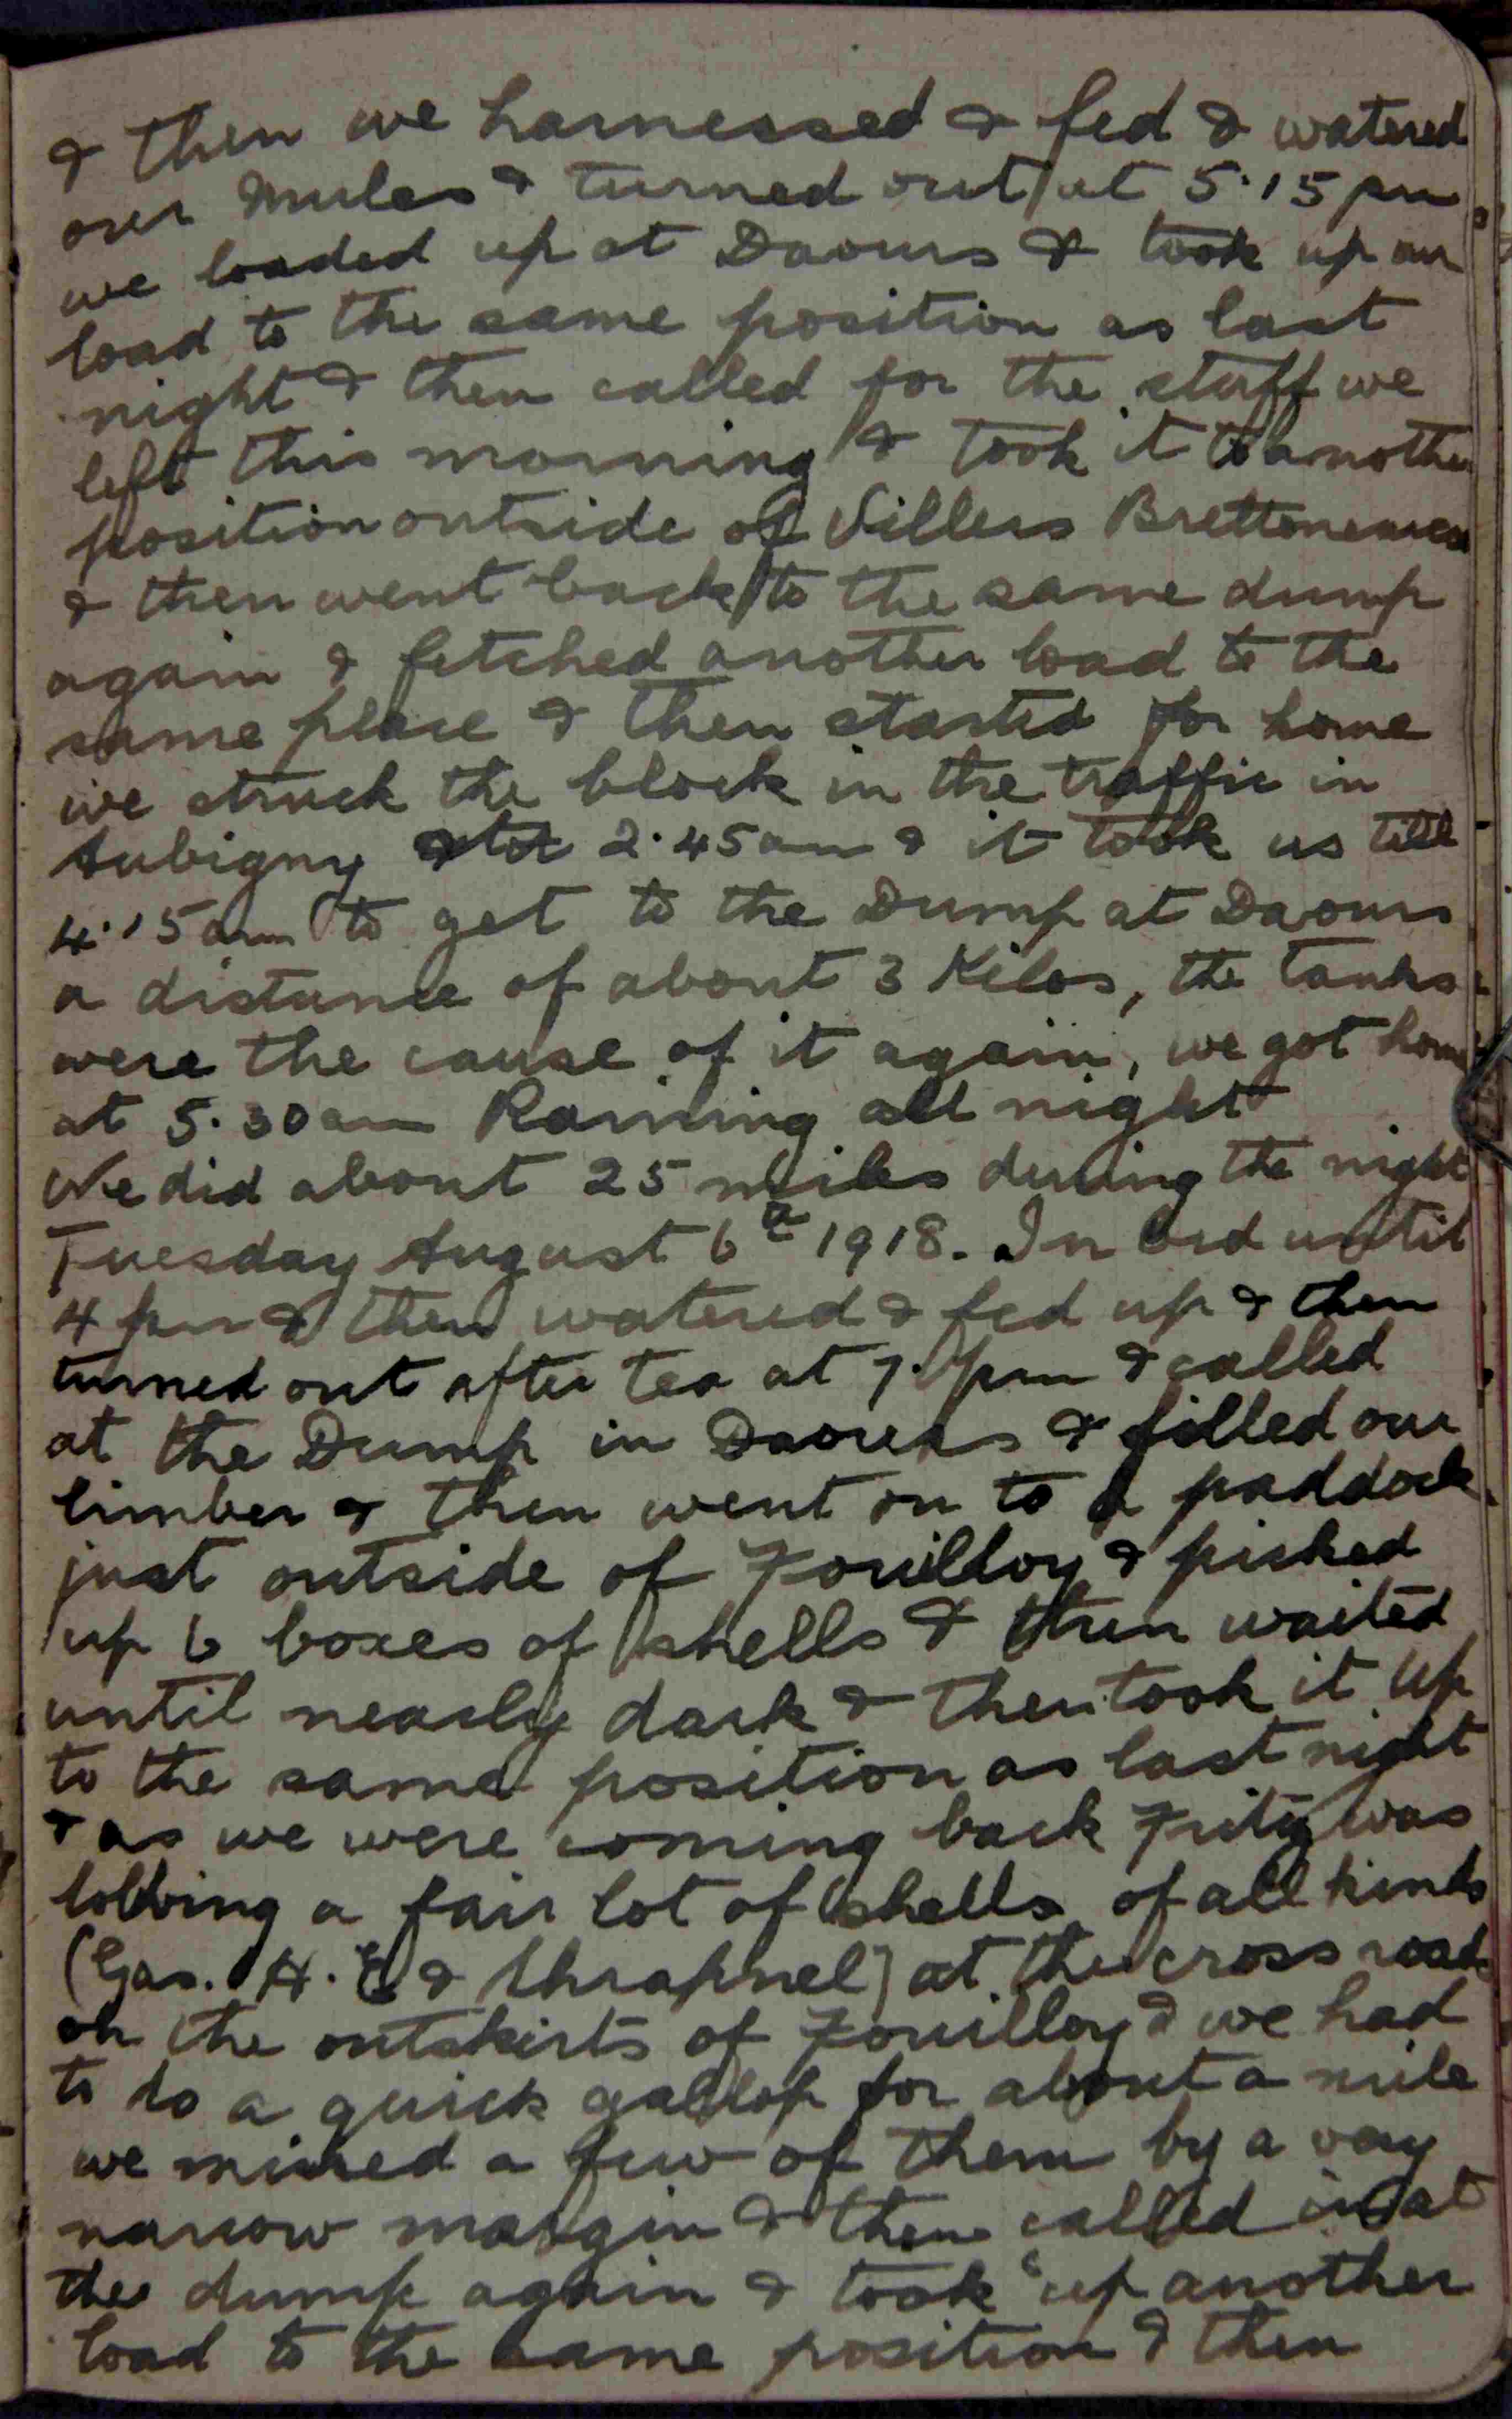 & then we harnessed & fed & watered
our mules & turned out at 5.15 pm
we loaded up at Daours & took up our
load to the same position as last
night & then called for the stuff we
left this morning & took it to another
position outside of Villers Brettoneaux
& then went back to the same dump
again & fetched another load to the
same place & then started for home
we struck the block in the traffic in
Aubigny at 2.45am & it took us till
4.15am to get to the Dump at Daours
a distance of about 3 Kilos, the tanks
were the cause of it again, we got home
at 5.30am Raining all night
We did about 25 miles during the night
Tuesday August 6th 1918. In bed until
4 pm & then watered & fed up & then
turned out after tea at 7. pm & called
at the Dump in Daours & filled our
limber & then went on to a paddock
just outside of Fouilloy & picked
up 6 boxes of shells & then waited
until nearly dark & then took it up
to the same position as last night
& as we were coming back Fritz was
lobbing a fair lot of shells of all kinds
(Gas. H.E & shrapnel) at the cross roads
on the outskirts of Fouilloy & we had
to do a quick gallop for about a mile
we missed a few of them by a very
narrow margin & then called in at
the dump again & took up another
load to the same position & then